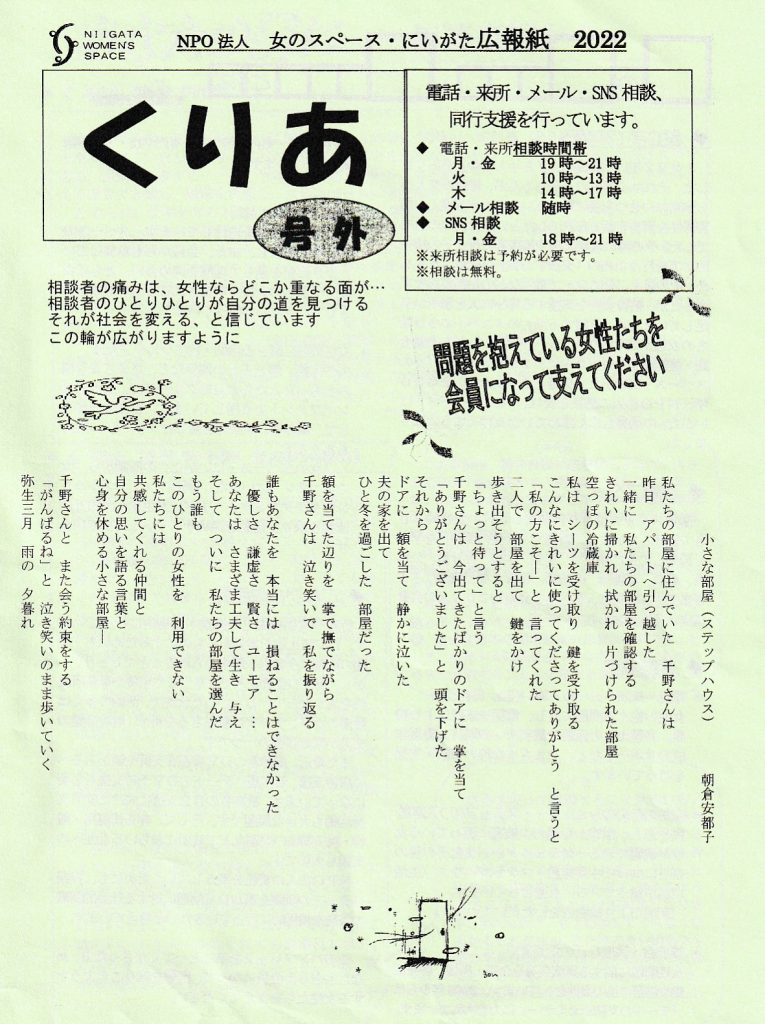 NIIGATA
WOMEN'S
SPACE
NPO法人 女のスペース・にいがた広報紙 2022
くりあ
号外
電話・来所・メール・SNS相談、
同行支援を行っています。
◆ 電話・来所相談時間帯
月・金 19時～21時
火 10時～13時
木 14時～17時
◆ メール相談 随時
◆ SNS相談
月・金 18時～21時
※来所相談は予約が必要です。
※相談は無料。
相談者の痛みは、女性ならどこか重なる面が…
相談者のひとりひとりが自分の道を見つける
それが社会を変える、と信じています
この輪が広がりますように
問題を抱えている女性たちを
会員になって支えてください
小さな部屋（ステップハウス） 朝倉安都子
私たちの部屋に住んでいた 千野さんは
昨日 アパートへ引っ越した
一緒に 私たちの部屋を確認する
きれいに掃かれ 拭かれ 片づけられた部屋
空っぽの冷蔵庫
私は シーツを受け取り 鍵を受け取る
こんなにきれいに使ってくださってありがとう と言うと
「私の方こそ―」と 言ってくれた
二人で 部屋を出て 鍵をかけ
歩き出そうとすると
「ちょっと待って」と言う
千野さんは 今出てきたばかりのドアに 掌を当て
「ありがとうございました」と 頭を下げた
それから
ドアに 額を当て 静かに泣いた
夫の家を出て
ひと冬を過ごした 部屋だった
額を当てた辺りを 掌で撫でながら
千野さんは 泣き笑いで 私を振り返る
誰もあなたを 本当には 損ねることはできなかった
優しさ 謙虚さ 賢さ ユーモア …
あなたは さまざま工夫して生き 与え
そして ついに 私たちの部屋を選んだ
もう誰も
このひとりの女性を 利用できない
私たちには
共感してくれる仲間と
自分の思いを語る言葉と
心身を休める小さな部屋―
千野さんと また会う約束をする
「がんばるね」と 泣き笑いのまま歩いていく
弥生三月 雨の 夕暮れ